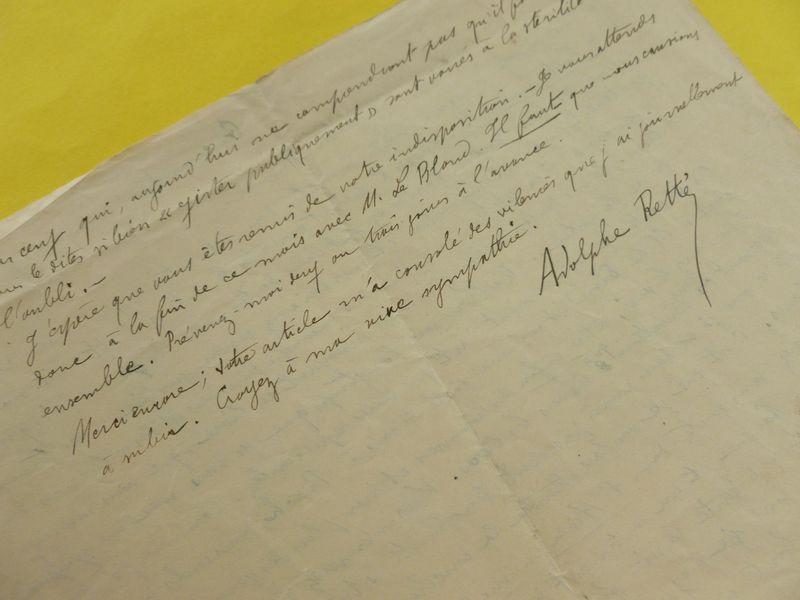 ceux qui, aujourd'hui ne comprendront pas qu'il
le dites si bien « exister publiquement » sont voués à la stérilité
l'oubli. —
J'espère que vous êtes remis de votre indisposition. — Je vous attends
donc à la fin de ce mois avec M. Le Blond. Il faut que nous causions
ensemble. Prévenez-moi deux ou trois jours à l'avance.
Merci encore; votre article m'a consolé des vilenies que j'ai journellement
à subir. Croyez à ma vive sympathie.
Adolphe Retté